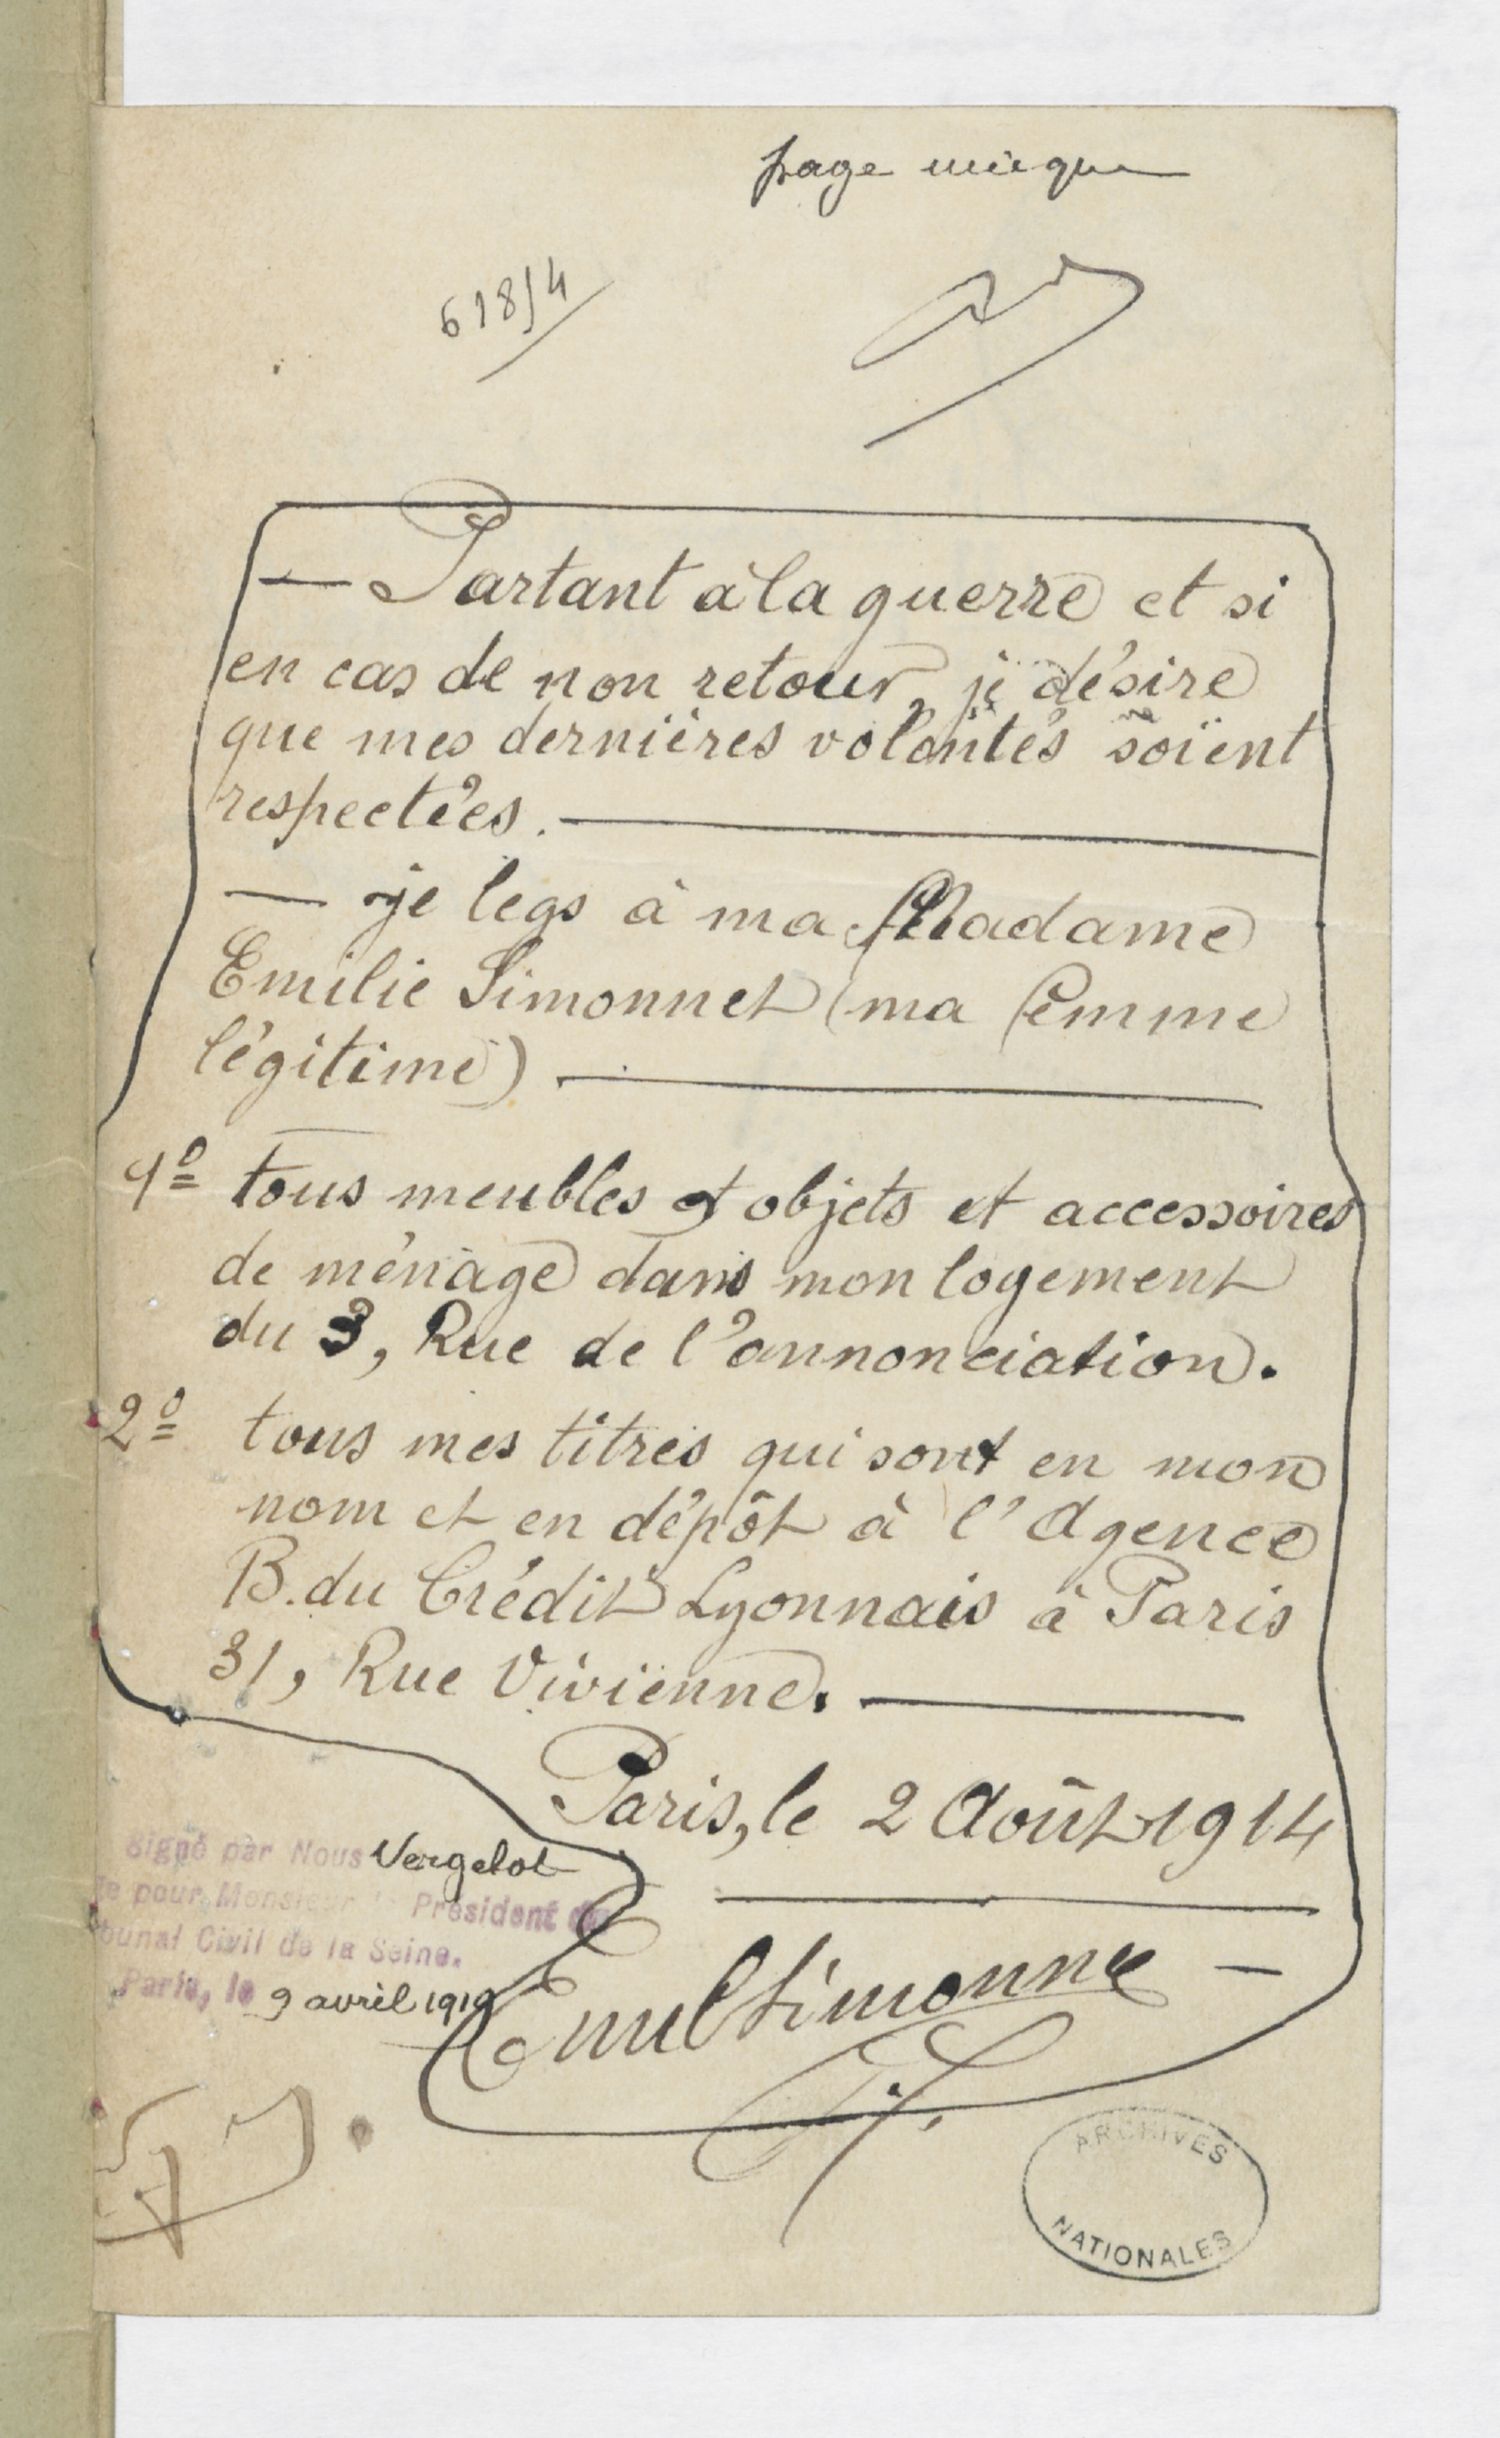 page unique
618/4
— Partant à la guerre et si
en cas de non retour, je désire
que mes dernières volontés soient
respectées. —
— je legs à ma Madame
Emilie Simonnet (ma femme
légitime) —
1º tous meubles et objets et accessoires
de ménage dans mon logement
du 3, Rue de l'annonciation.
2º tous mes titres qui sont en mon
nom et en dépôt à l'Agence
B. du Crédit Lyonnais à Paris
31, Rue Vivienne. —
Paris, le 2 Août 1914
Signé par Nous Vergelot
pour Monsieur Président du
bunal Civil de la Seine.
Paris, le 9 avril 1919
Emil Simonne —
ARCHIVES
NATIONALES